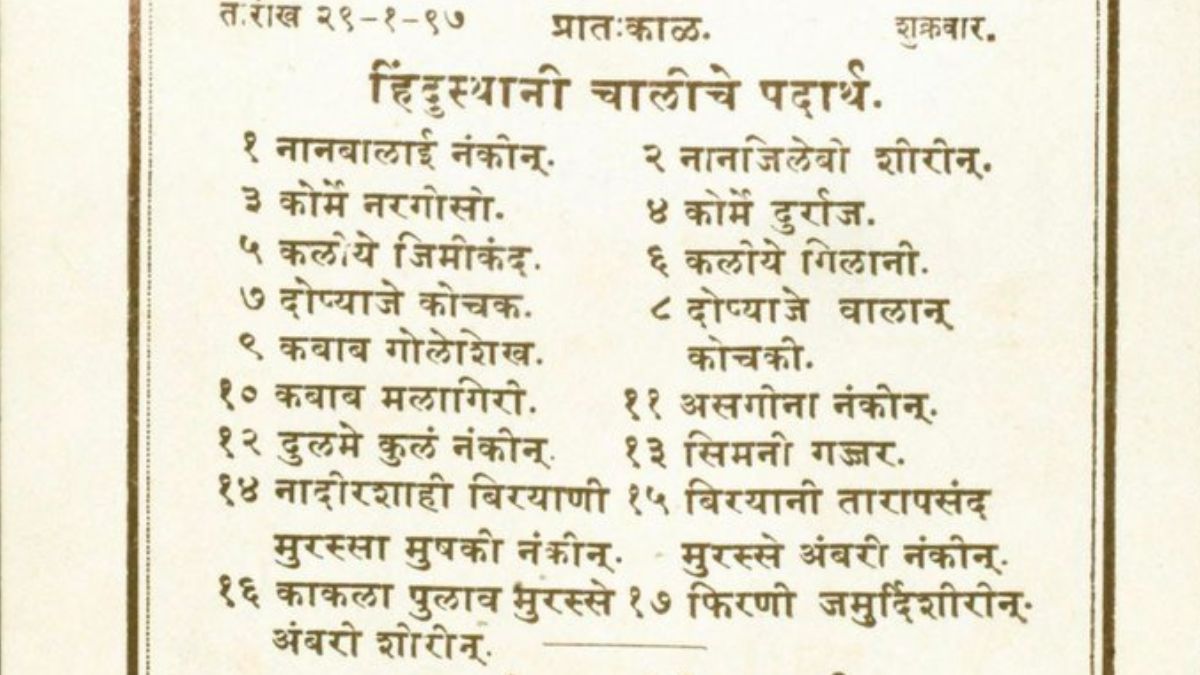 तारीख २९-१-९७ प्रातःकाळ. शुक्रवार.
हिंदुस्थानी चालीचे पदार्थ.
१ नानबालाई नंकीन्. २ नानजिलेबी शीरीन्.
३ कोर्मे नरगीसी. ४ कोर्मे दुर्राज.
५ कलीये जिमीकंद. ६ कलीये गिलानी.
७ दोप्याजे कोचक. ८ दोप्याजे वालान्
९ कबाब गोलेशिख. कोचकी.
१० कबाब मलागिरी. ११ असगीना नंकीन्.
१२ दुलमे कुलं नंकीन्. १३ सिमनी गज्जर.
१४ नादीरशाही बिरयाणी १५ बिरयानी तारापसंद
मुरस्सा मुषकी नंकीन्. मुरस्से अंबरी नंकीन्.
१६ काकला पुलाव मुरस्से १७ फिरणी जमुर्दिशीरीन्.
अंबरी शीरीन्.